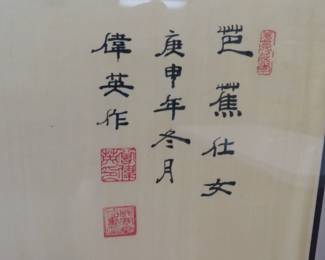 芭蕉仕女
庚申年冬月
偉英作